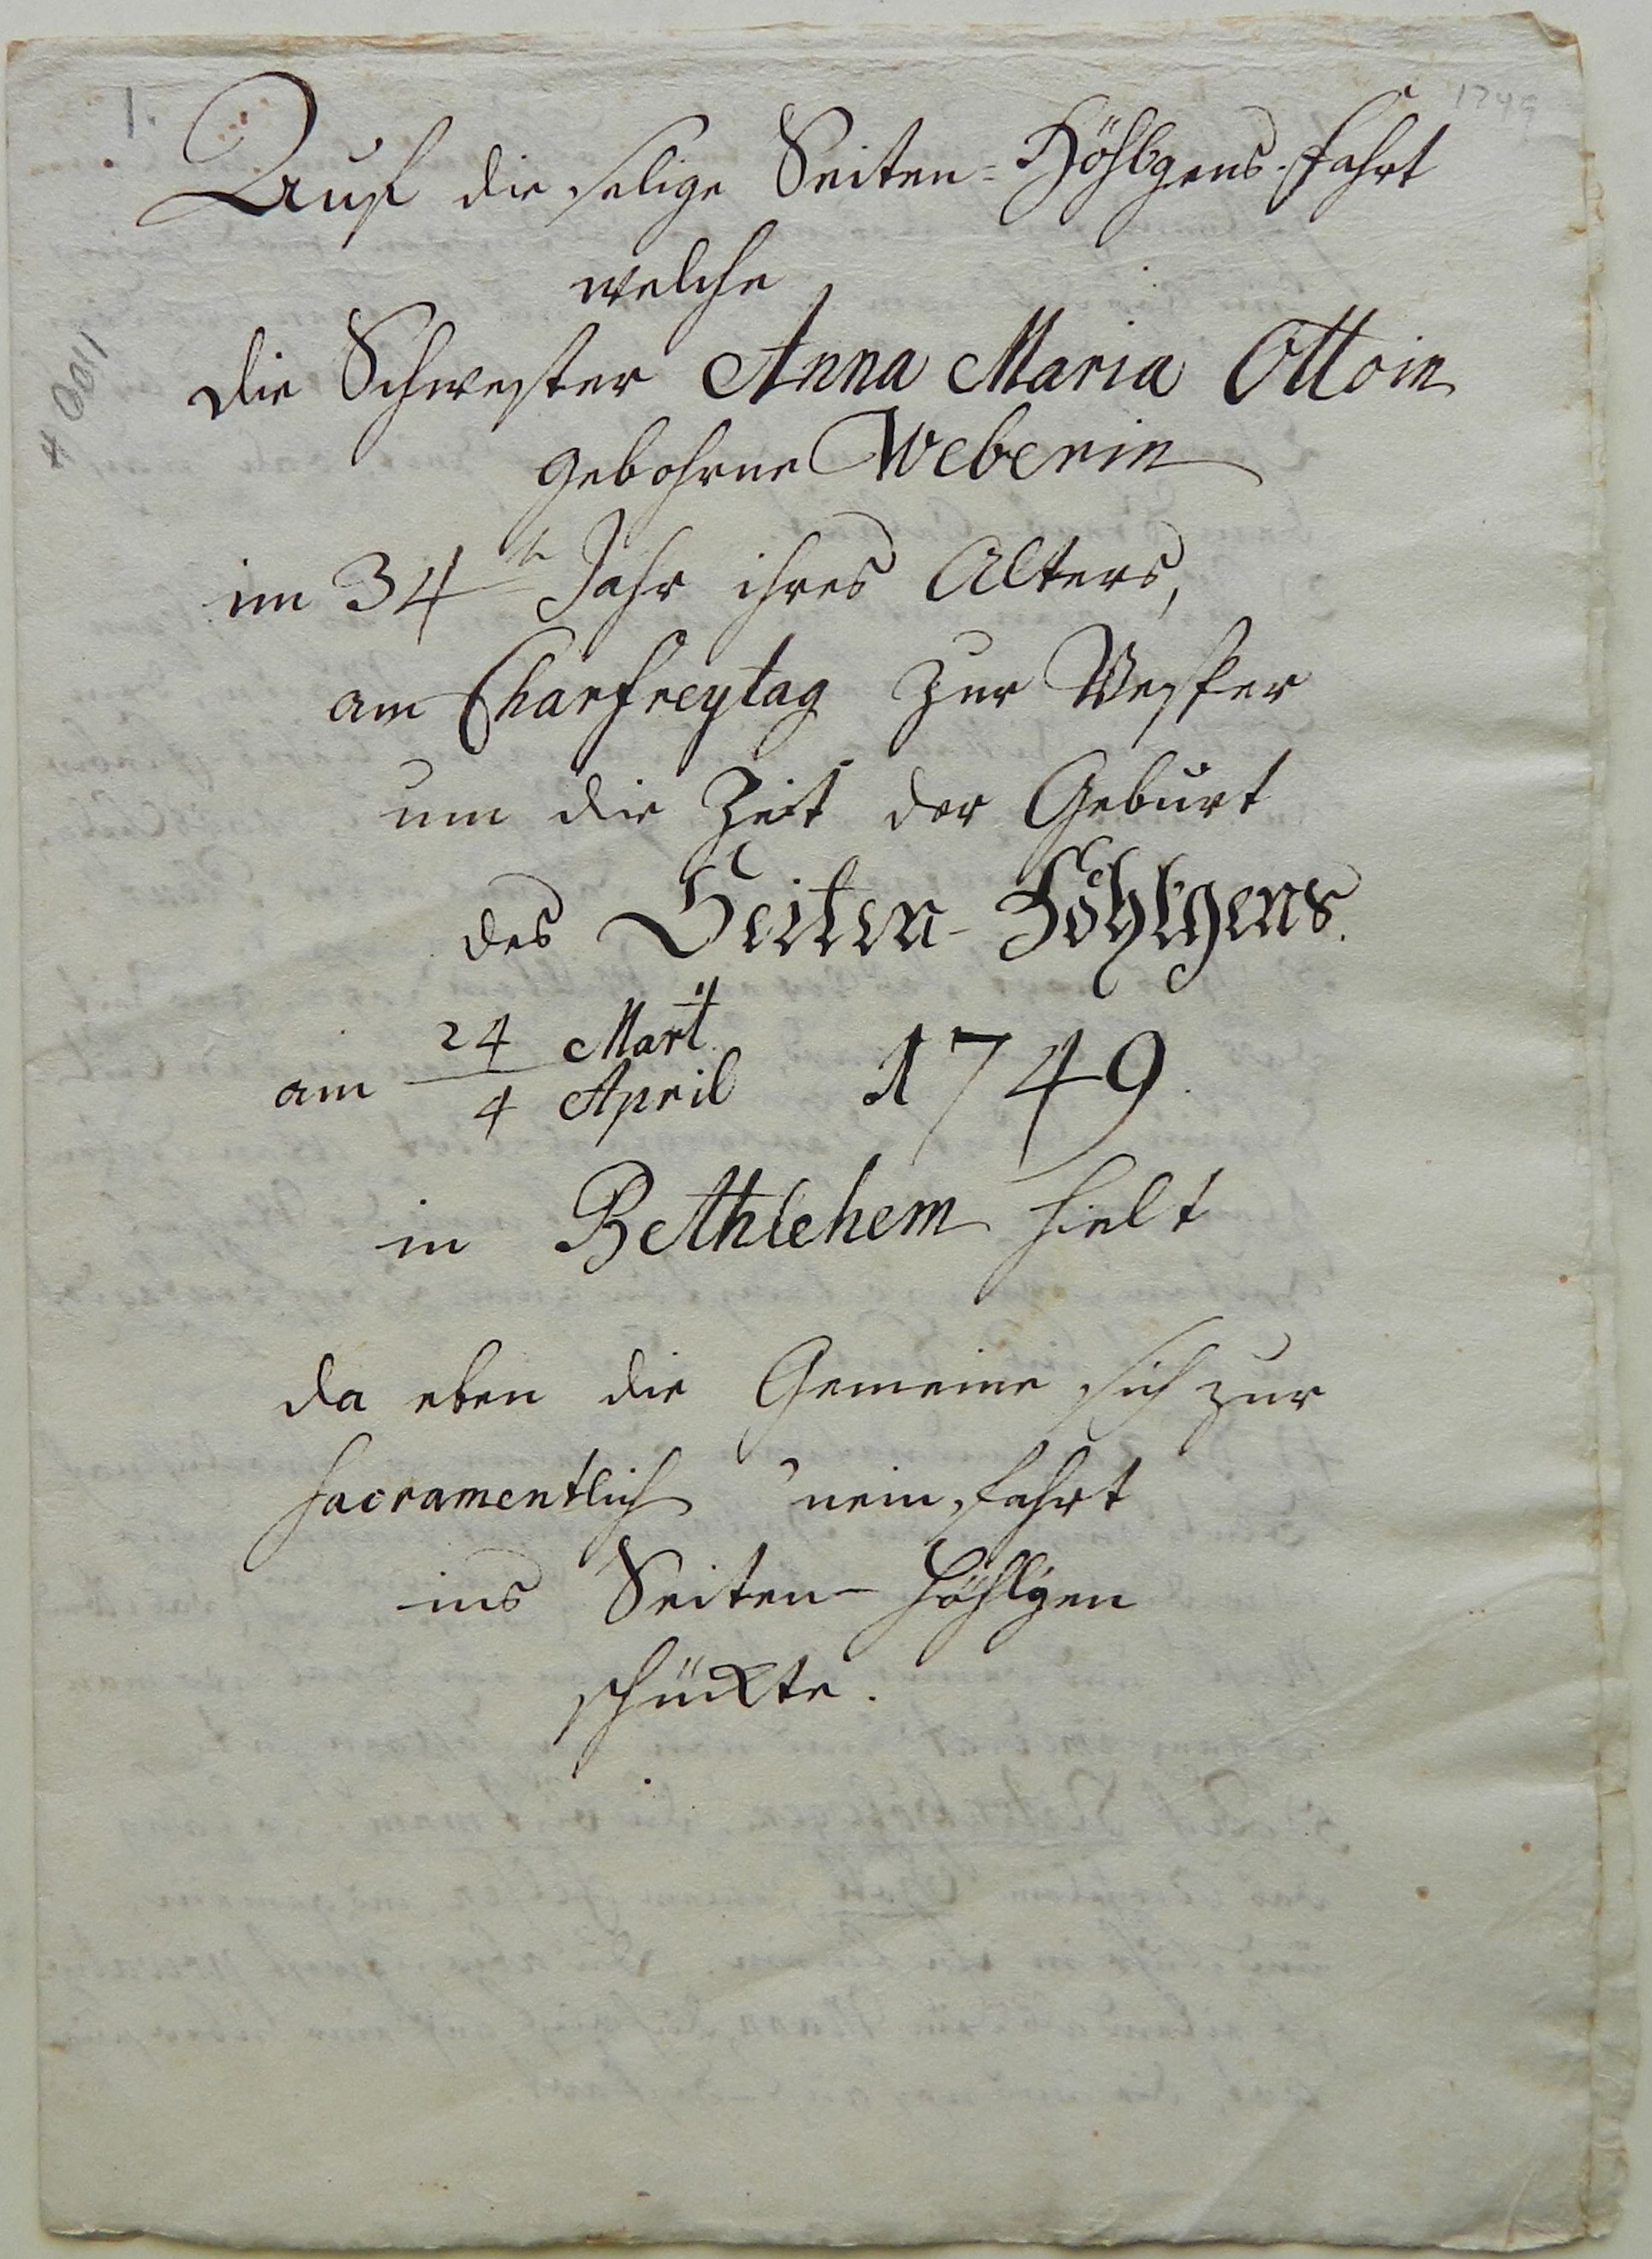 1.
1749
Auf die selige Seiten=Höhlgens-Fahrt
welche
die Schwester Anna Maria Ottoin
gebohrne Weberin
im 34 Jahr ihres Alters,
am Charfreytag zur Vesper
um die Zeit der Geburt
des Seiten-Höhlgens.
am 24 Mart. / 4 April 1749.
in Bethlehem hielt
da eben die Gemeine sich zur
sacramentlich 'nein fahrt
ins Seiten-Höhlgen
schückte.